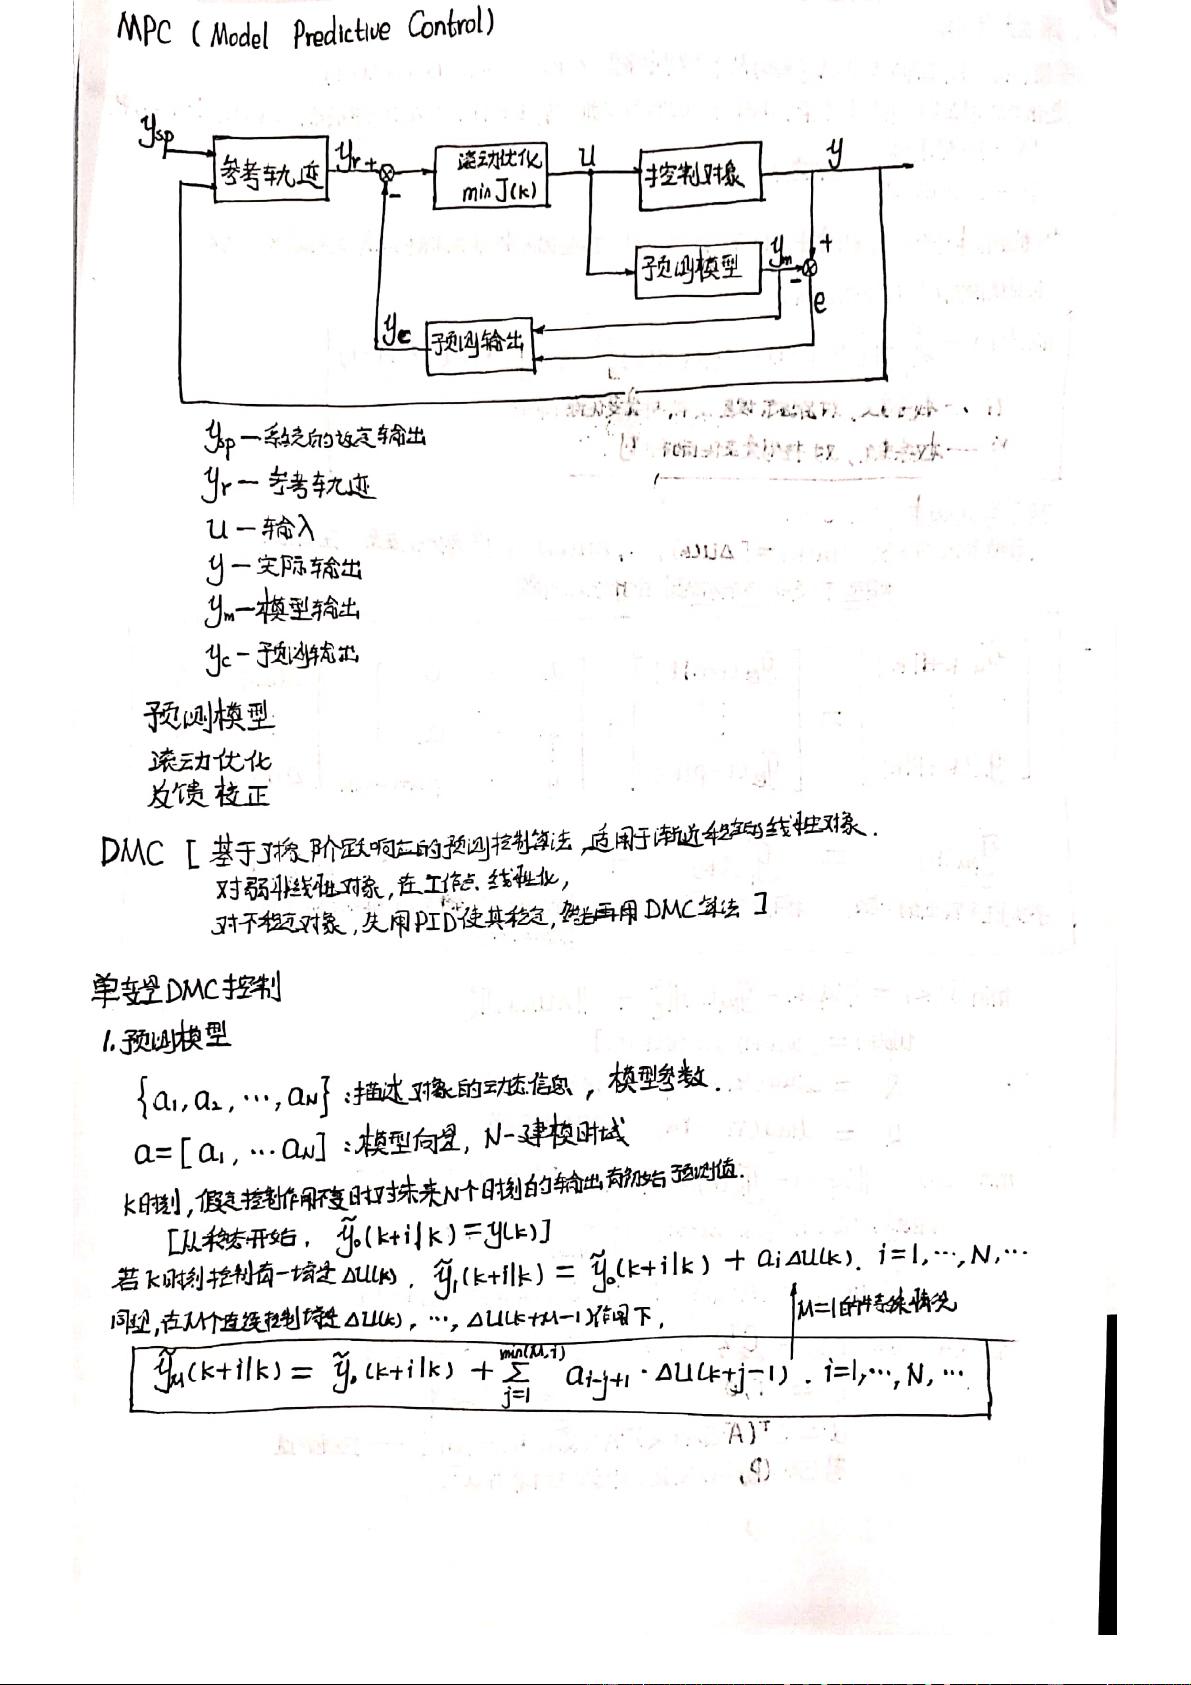 MPC ( Model Predictive Control)
ysp
参考轨迹
yr +
-
滚动优化
min J(k)
u
控制对象
y
预测模型
ym
+
-
e
yc
预测输出
ysp — 系统的设定输出
yr — 参考轨迹
u — 输入
y — 实际输出
ym — 模型输出
yc - 预测输出
预测模型
滚动优化
反馈校正
DMC [ 基于对象阶跃响应的预测控制算法, 适用于渐近稳定的线性对象.
对弱非线性对象, 在工作点线性化,
对不稳定对象, 先用PID使其稳定, 然后再用DMC算法 ]
单变量DMC控制
1. 预测模型
{a₁, a₂, ⋯, a_N} : 描述对象的动态信息, 模型参数.
a = [ a₁, ⋯ a_N ] : 模型向量, N-建模时域
k时刻, 假定控制作用不变时对未来N个时刻的输出有初始预测值.
[从稳态开始, ỹ₀(k+i|k) = y(k)]
若k时刻控制有一增量 Δu(k). ỹ₁(k+i|k) = ỹ₀(k+i|k) + aᵢΔu(k). i=1, ⋯, N, ⋯
同理, 在M个连续控制增量 Δu(k), ⋯, Δu(k+M-1)作用下,
M=1的特殊情况
ỹ_M(k+i|k) = ỹ₀(k+i|k) + Σ_{j=1}^{min(M,i)} a_{i-j+1} · Δu(k+j-1). i=1, ⋯, N, ⋯